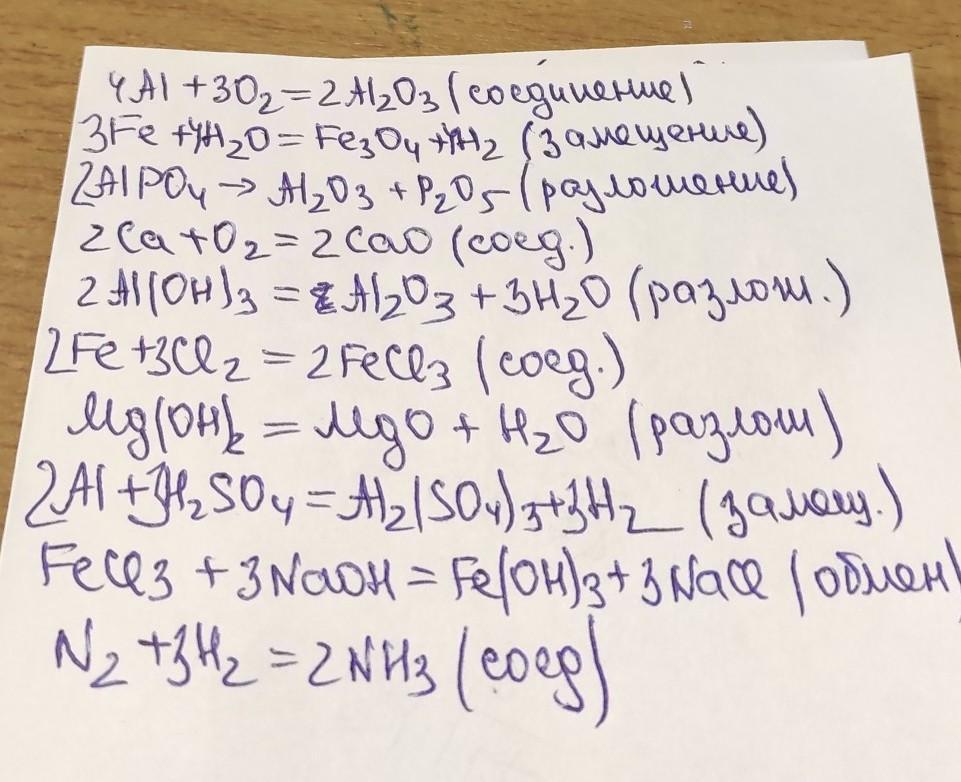 4Al + 3O₂ = 2Al₂O₃ (соединение)
3Fe + 4H₂O = Fe₃O₄ + 4H₂ (замещение)
2AlPO₄ → Al₂O₃ + P₂O₅ (разлошение)
2Ca + O₂ = 2CaO (соед.)
2Al(OH)₃ = Al₂O₃ + 3H₂O (разлож.)
2Fe + 3Cl₂ = 2FeCl₃ (соед.)
Mg(OH)₂ = MgO + H₂O (разлож)
2Al + 3H₂SO₄ = Al₂(SO₄)₃ + 3H₂ (замещ.)
FeCl₃ + 3NaOH = Fe(OH)₃ + 3NaCl (обмен)
N₂ + 3H₂ = 2NH₃ (соед)